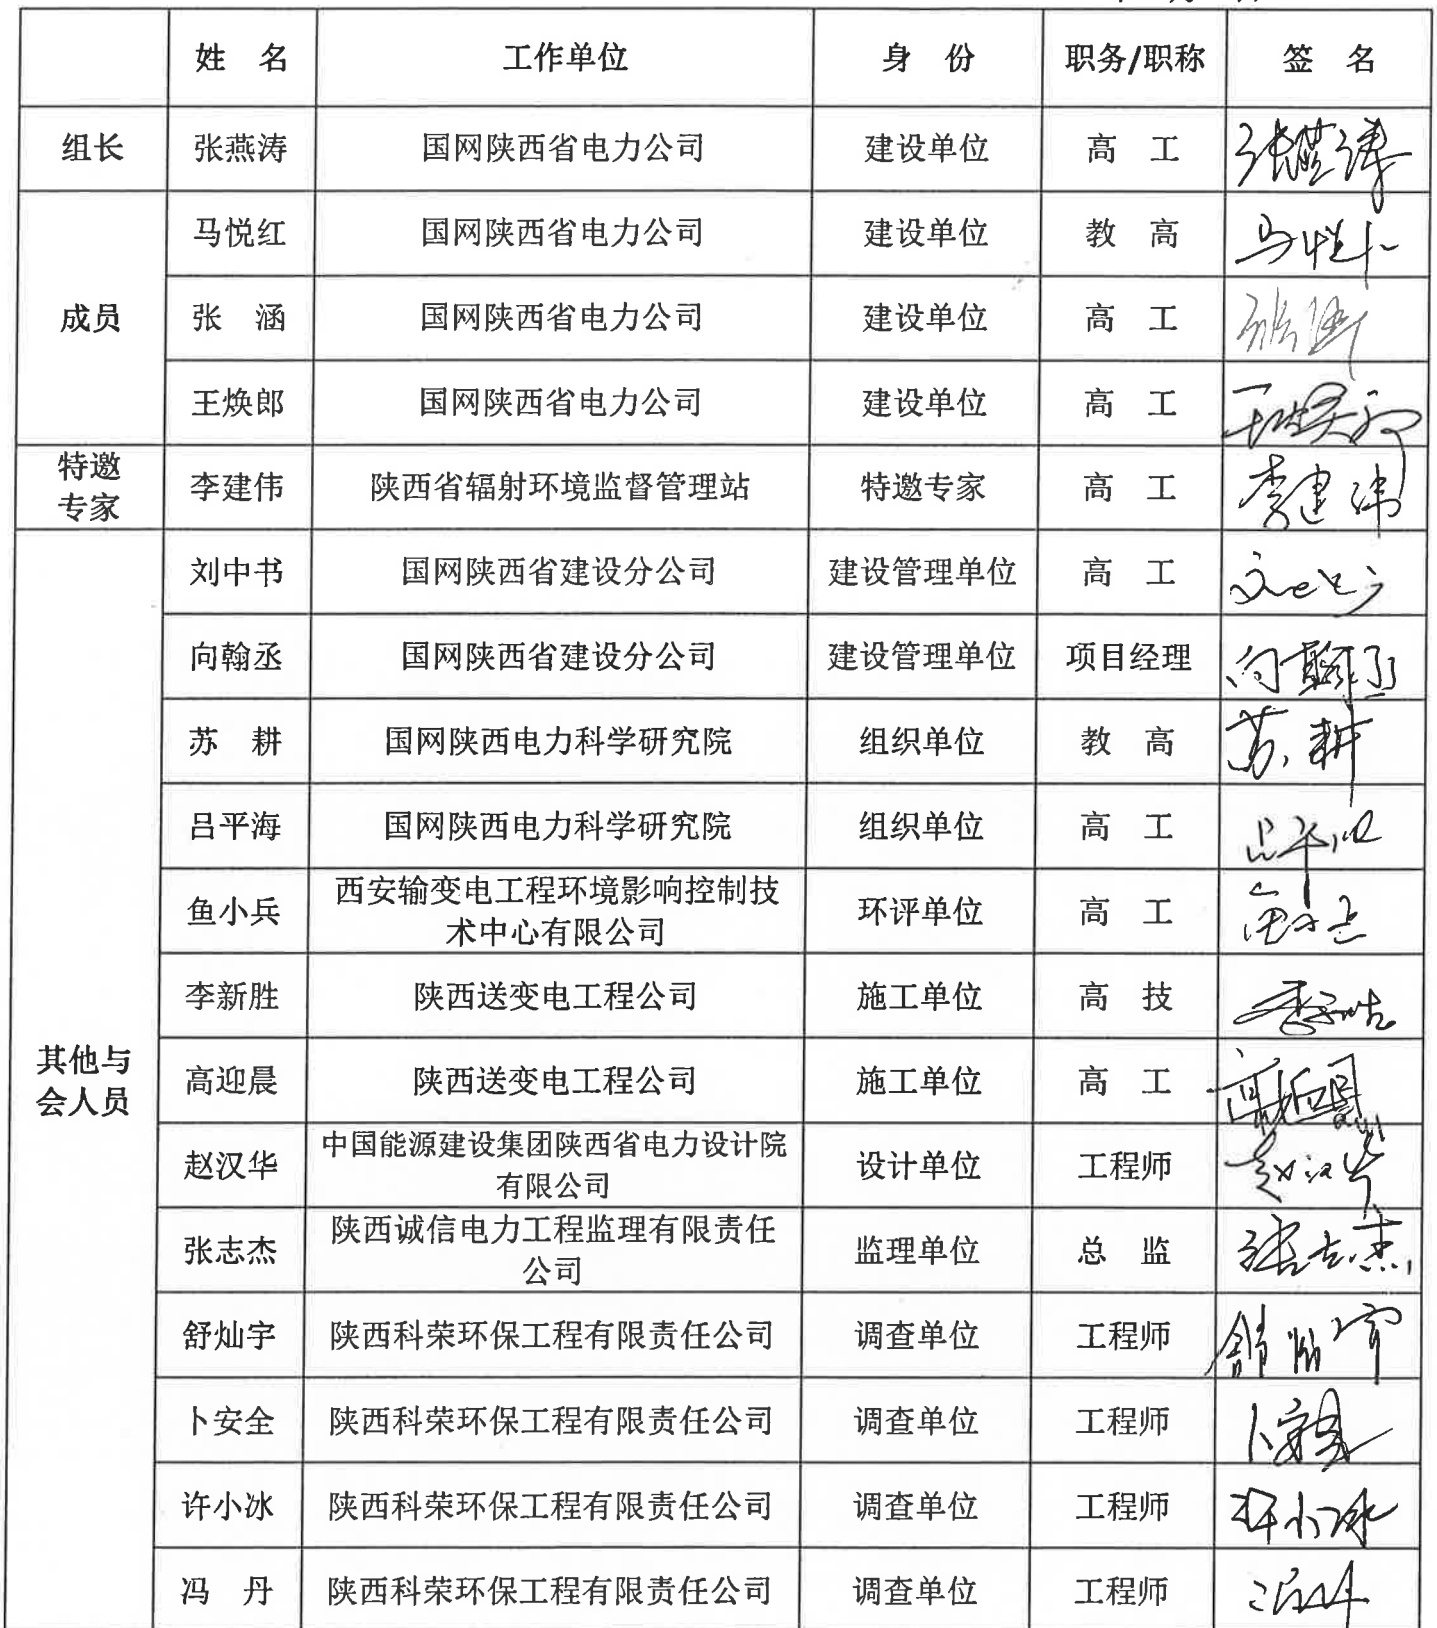 姓 名 工作单位 身 份 职务/职称 签 名
组长 张燕涛 国网陕西省电力公司 建设单位 高 工 张燕涛
成员 马悦红 国网陕西省电力公司 建设单位 教 高 马悦红
张 涵 国网陕西省电力公司 建设单位 高 工 张涵
王焕郎 国网陕西省电力公司 建设单位 高 工 王焕郎
特邀
专家 李建伟 陕西省辐射环境监督管理站 特邀专家 高 工 李建伟
其他与
会人员 刘中书 国网陕西省建设分公司 建设管理单位 高 工
向翰丞 国网陕西省建设分公司 建设管理单位 项目经理 向翰丞
苏 耕 国网陕西电力科学研究院 组织单位 教 高 苏耕
吕平海 国网陕西电力科学研究院 组织单位 高 工 吕平海
鱼小兵 西安输变电工程环境影响控制技
术中心有限公司 环评单位 高 工
李新胜 陕西送变电工程公司 施工单位 高 技
高迎晨 陕西送变电工程公司 施工单位 高 工
赵汉华 中国能源建设集团陕西省电力设计院
有限公司 设计单位 工程师 赵汉华
张志杰 陕西诚信电力工程监理有限责任
公司 监理单位 总 监 张志杰
舒灿宇 陕西科荣环保工程有限责任公司 调查单位 工程师 舒灿宇
卜安全 陕西科荣环保工程有限责任公司 调查单位 工程师 卜安全
许小冰 陕西科荣环保工程有限责任公司 调查单位 工程师 许小冰
冯 丹 陕西科荣环保工程有限责任公司 调查单位 工程师 冯丹